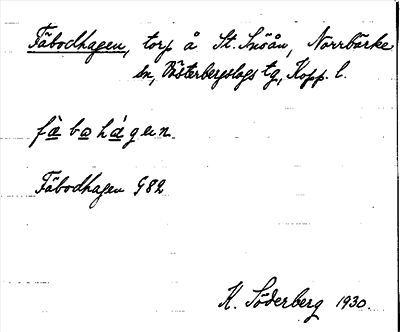 Fäbodhagen, torp å St. Snöån, Norrbärke
sn, Västerbergslags tg, Kopp. l.
fä̀bohágen
Fäbodhagen G82
K. Söderberg 1930.